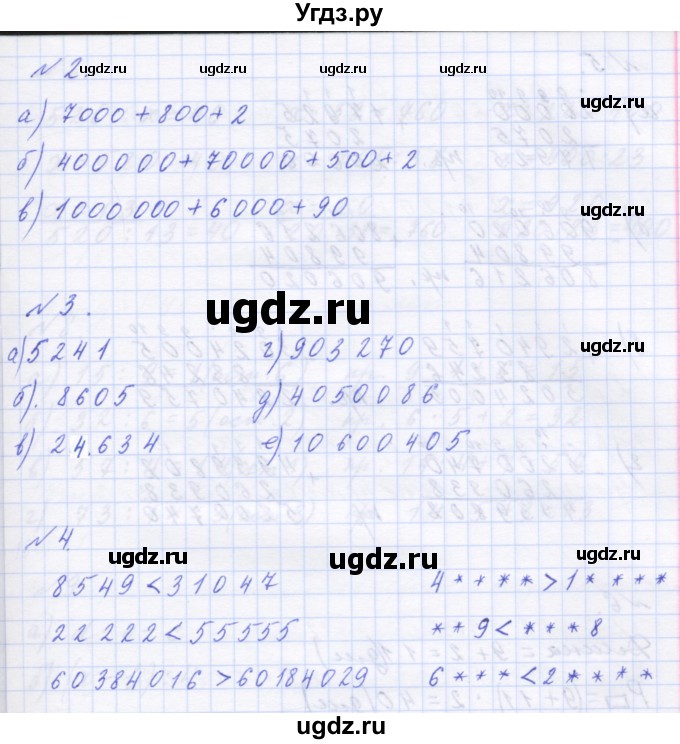 Угдз.ру
№ 2.
ugdz.ru ugdz.ru ugdz.ru
а) 7000 + 800 + 2
ugdz.ru
б) 400000 + 70000 + 500 + 2
в) 1000 000 + 6000 + 90
ugdz.ru
№ 3.
ugdz.ru
а) 5241 г) 903 270
ugdz.ru
б). 8605 д) 4050086
в) 24.634 е) 10 600 405
ugdz.ru
№ 4.
ugdz.ru ugdz.ru ugdz.ru
8549 < 31047 4**** > 1****
22222 < 55555 **9 < ***8
ugdz.ru
60384016 > 60184029 6*** < 2****
ugdz.ru ugdz.ru ugdz.ru
ugdz.ru